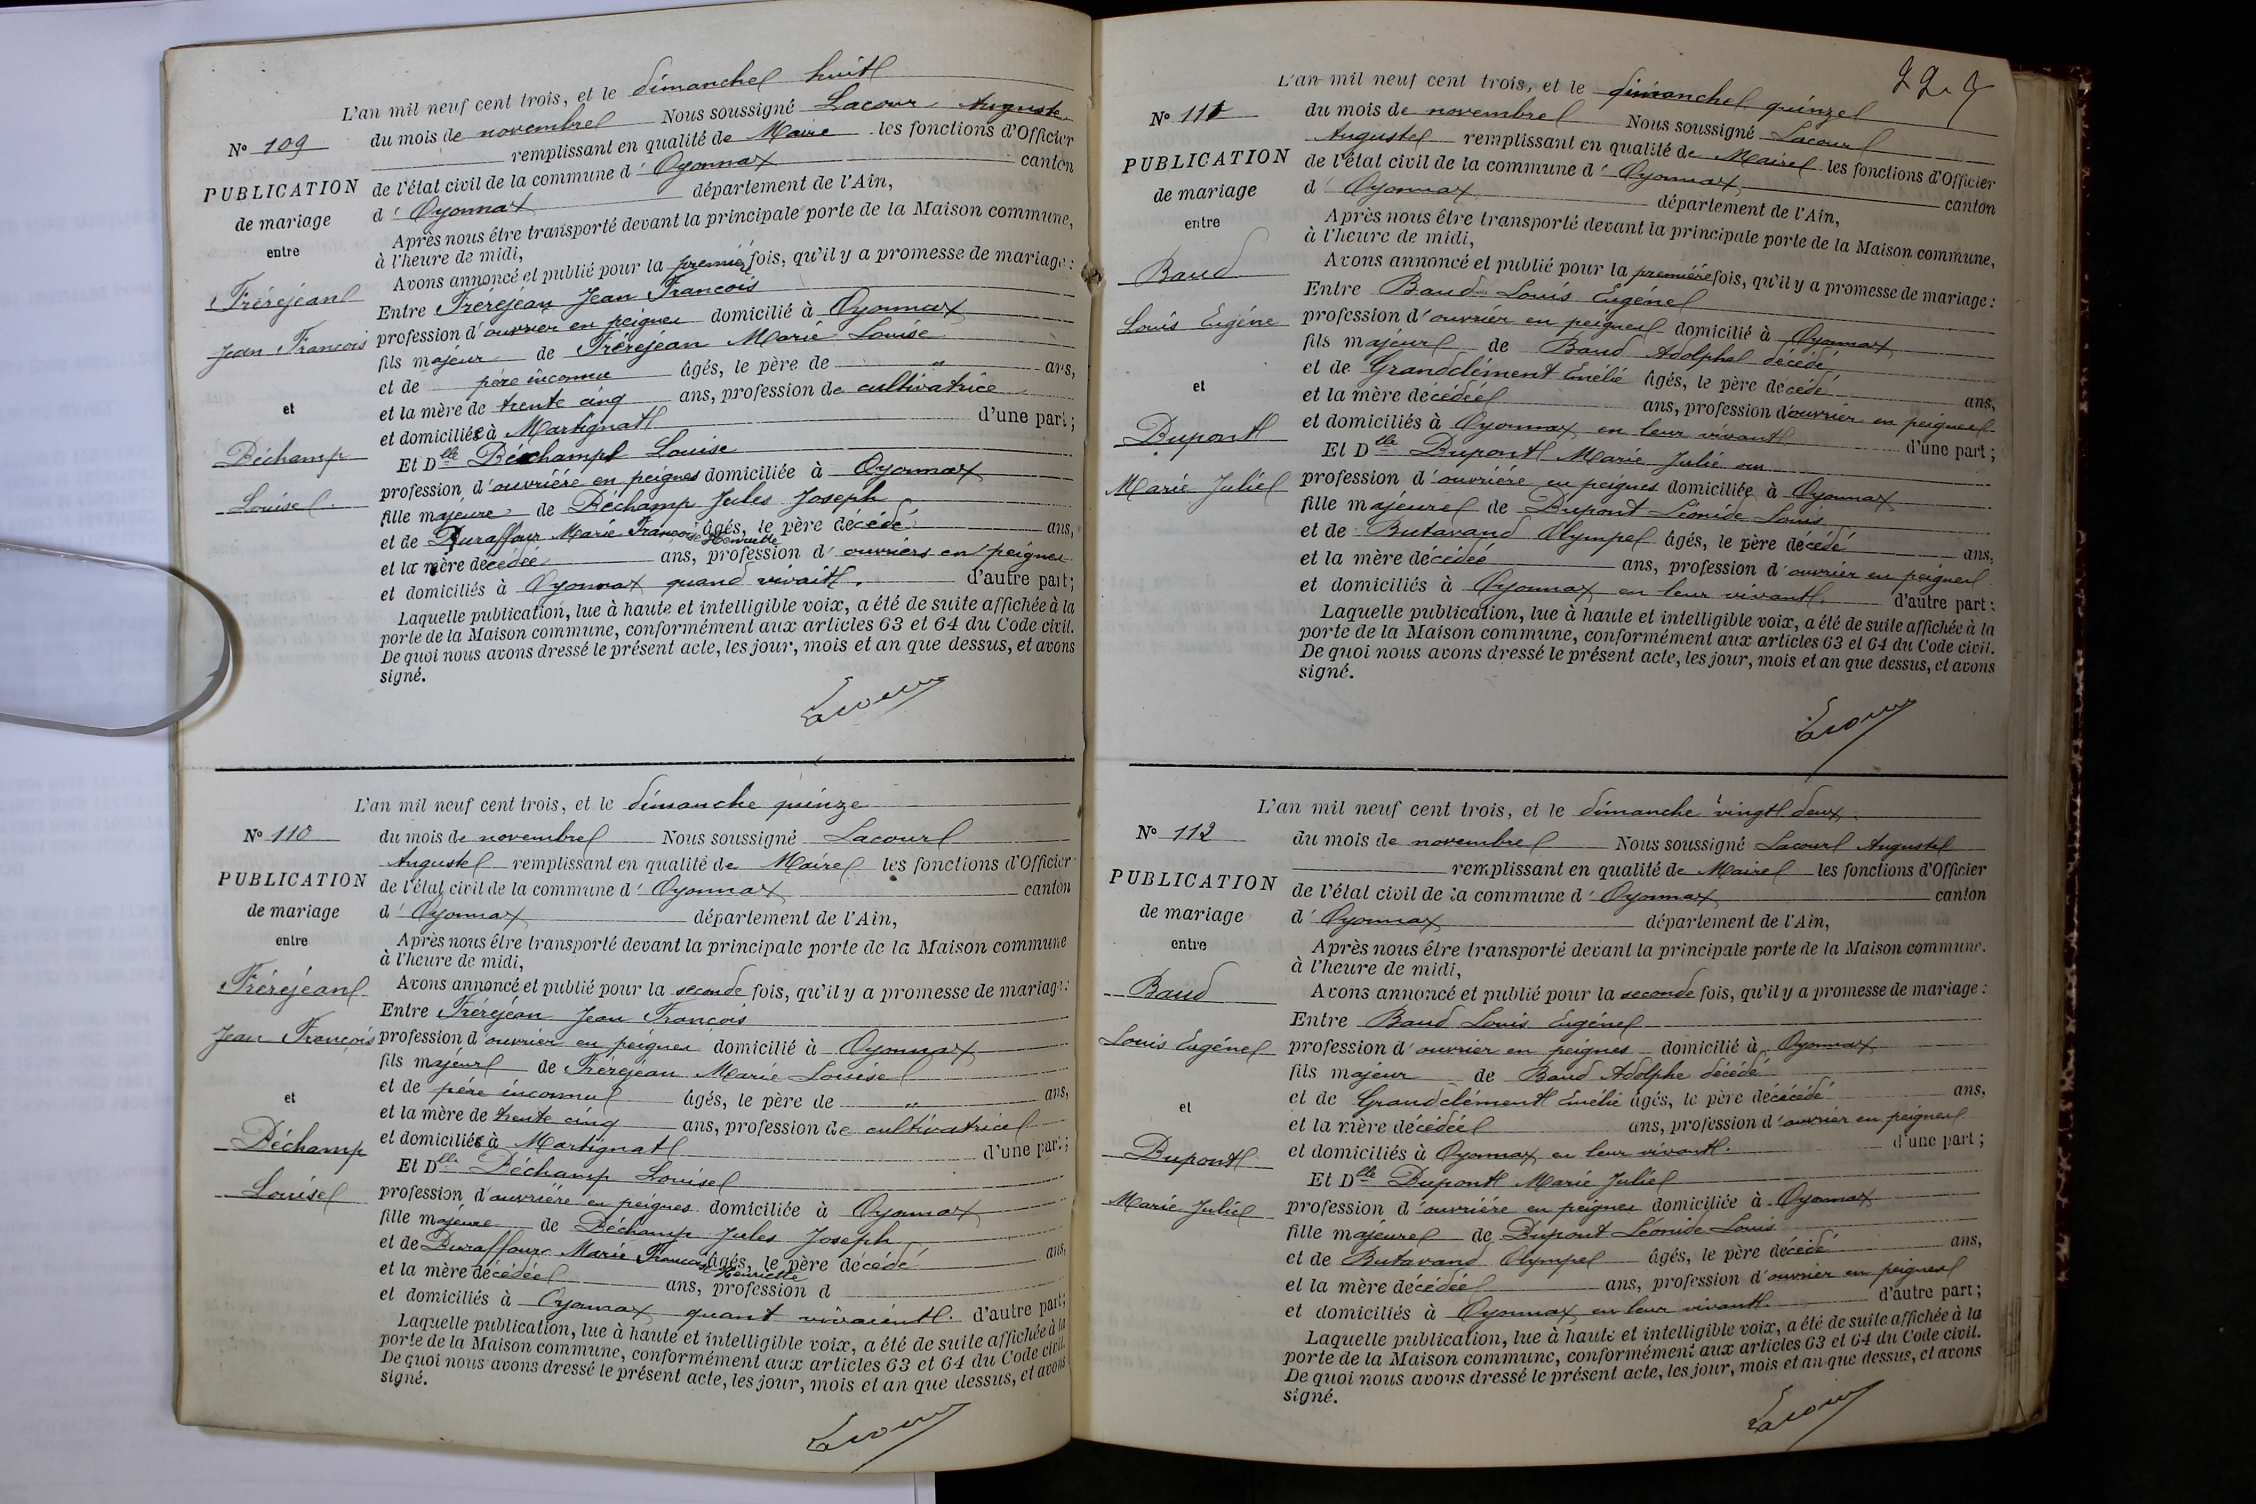 L'an mil neuf cent trois, et le dimanche huit
N° 109 du mois de novembre Nous soussigné Lacour Auguste
remplissant en qualité de Maire les fonctions d'Officier
PUBLICATION de l'état civil de la commune d' Oyonnax canton
de mariage d' Oyonnax département de l'Ain,
entre Après nous être transporté devant la principale porte de la Maison commune,
à l'heure de midi,
Avons annoncé et publié pour la premiè fois, qu'il y a promesse de mariage :
Fréréjean Entre Fréréjean Jean François
Jean François profession d'ouvrier en peignes domicilié à Oyonnax
fils majeur de Fréréjean Marie Louise
et de père inconnu âgés, le père de " ans,
et et la mère de trente cinq ans, profession de cultivatrice
et domiciliés à Martignat d'une part ;
Déchamp Et Dlle Déchamp Louise
profession d'ouvrière en peignes domiciliée à Oyonnax
Louise fille majeure de Déchamp Jules Joseph
et de Duraffour Marie Françoise Henriette âgés, le père décédé ans,
et la mère décédée ans, profession d' ouvriers en peignes
et domiciliés à Oyonnax quand vivait. d'autre part ;
Laquelle publication, lue à haute et intelligible voix, a été de suite affichée à la
porte de la Maison commune, conformément aux articles 63 et 64 du Code civil.
De quoi nous avons dressé le présent acte, les jour, mois et an que dessus, et avons
signé.
Lacour
L'an mil neuf cent trois, et le dimanche quinze
N° 110 du mois de novembre Nous soussigné Lacour
Auguste remplissant en qualité de Maire les fonctions d'Officier
PUBLICATION de l'état civil de la commune d' Oyonnax canton
de mariage d' Oyonnax département de l'Ain,
entre Après nous être transporté devant la principale porte de la Maison commune
à l'heure de midi,
Fréréjean Avons annoncé et publié pour la seconde fois, qu'il y a promesse de mariage :
Entre Fréréjean Jean François
Jean François profession d'ouvrier en peignes domicilié à Oyonnax
fils majeur de Fréréjean Marie Louise
et de père inconnu âgés, le père de " ans,
et et la mère de trente cinq ans, profession de cultivatrice
et domiciliés à Martignat d'une part ;
Déchamp Et Dlle Déchamp Louise
Louise profession d'ouvrière en peignes domiciliée à Oyonnax
fille majeure de Déchamp Jules Joseph
et de Duraffour Marie Françoise Henriette âgés, le père décédé ans,
et la mère décédée ans, profession d
et domiciliés à Oyonnax quant vivaient. d'autre part ;
Laquelle publication, lue à haute et intelligible voix, a été de suite affichée à la
porte de la Maison commune, conformément aux articles 63 et 64 du Code civil.
De quoi nous avons dressé le présent acte, les jour, mois et an que dessus, et avons
signé.
Lacour
L'an mil neuf cent trois, et le dimanche quinze
N° 111 du mois de novembre Nous soussigné Lacour
Auguste remplissant en qualité de Maire les fonctions d'Officier
PUBLICATION de l'état civil de la commune d' Oyonnax canton
de mariage d' Oyonnax département de l'Ain,
entre Après nous être transporté devant la principale porte de la Maison commune,
à l'heure de midi,
Baud Avons annoncé et publié pour la première fois, qu'il y a promesse de mariage :
Entre Baud Louis Eugéne
Louis Eugéne profession d'ouvrier en peignes domicilié à Oyonnax
fils majeur de Baud Adolphe décédé
et de Grandclément Emélié âgés, le père décédé ans,
et et la mère décédée ans, profession d'ouvrier en peignes
et domiciliés à Oyonnax en leur vivant d'une part ;
Dupont Et Dlle Dupont Marie Julie
Marie Julie profession d'ouvrière en peignes domiciliée à Oyonnax
fille majeure de Dupont Léonide Louis
et de Butavand Olympe âgés, le père décédé ans,
et la mère décédée ans, profession d'ouvrier en peignes
et domiciliés à Oyonnax en leur vivant. d'autre part ;
Laquelle publication, lue à haute et intelligible voix, a été de suite affichée à la
porte de la Maison commune, conformément aux articles 63 et 64 du Code civil.
De quoi nous avons dressé le présent acte, les jour, mois et an que dessus, et avons
signé.
Lacour
L'an mil neuf cent trois, et le dimanche vingt deux
N° 112 du mois de novembre Nous soussigné Lacour Auguste
remplissant en qualité de Maire les fonctions d'Officier
PUBLICATION de l'état civil de la commune d' Oyonnax canton
de mariage d' Oyonnax département de l'Ain,
entre Après nous être transporté devant la principale porte de la Maison commune.
à l'heure de midi,
Baud Avons annoncé et publié pour la seconde fois, qu'il y a promesse de mariage :
Entre Baud Louis Eugéne
Louis Eugéne profession d'ouvrier en peignes domicilié à Oyonnax
fils majeur de Baud Adolphe décédé
et de Grandclément Emélie âgés, le père décécédé ans,
et et la mère décédée ans, profession d'ouvrier en peignes
Dupont et domiciliés à Oyonnax en leur vivant. d'une part ;
Et Dlle Dupont Marie Julie
Marie Julie profession d'ouvrière en peignes domiciliée à Oyonnax
fille majeure de Dupont Léonide Louis
et de Butavand Olympe âgés, le père décédé ans,
et la mère décédée ans, profession d'ouvrier en peignes
et domiciliés à Oyonnax en leur vivant. d'autre part ;
Laquelle publication, lue à haute et intelligible voix, a été de suite affichée à la
porte de la Maison commune, conformément aux articles 63 et 64 du Code civil.
De quoi nous avons dressé le présent acte, les jour, mois et an que dessus, et avons
signé.
Lacour